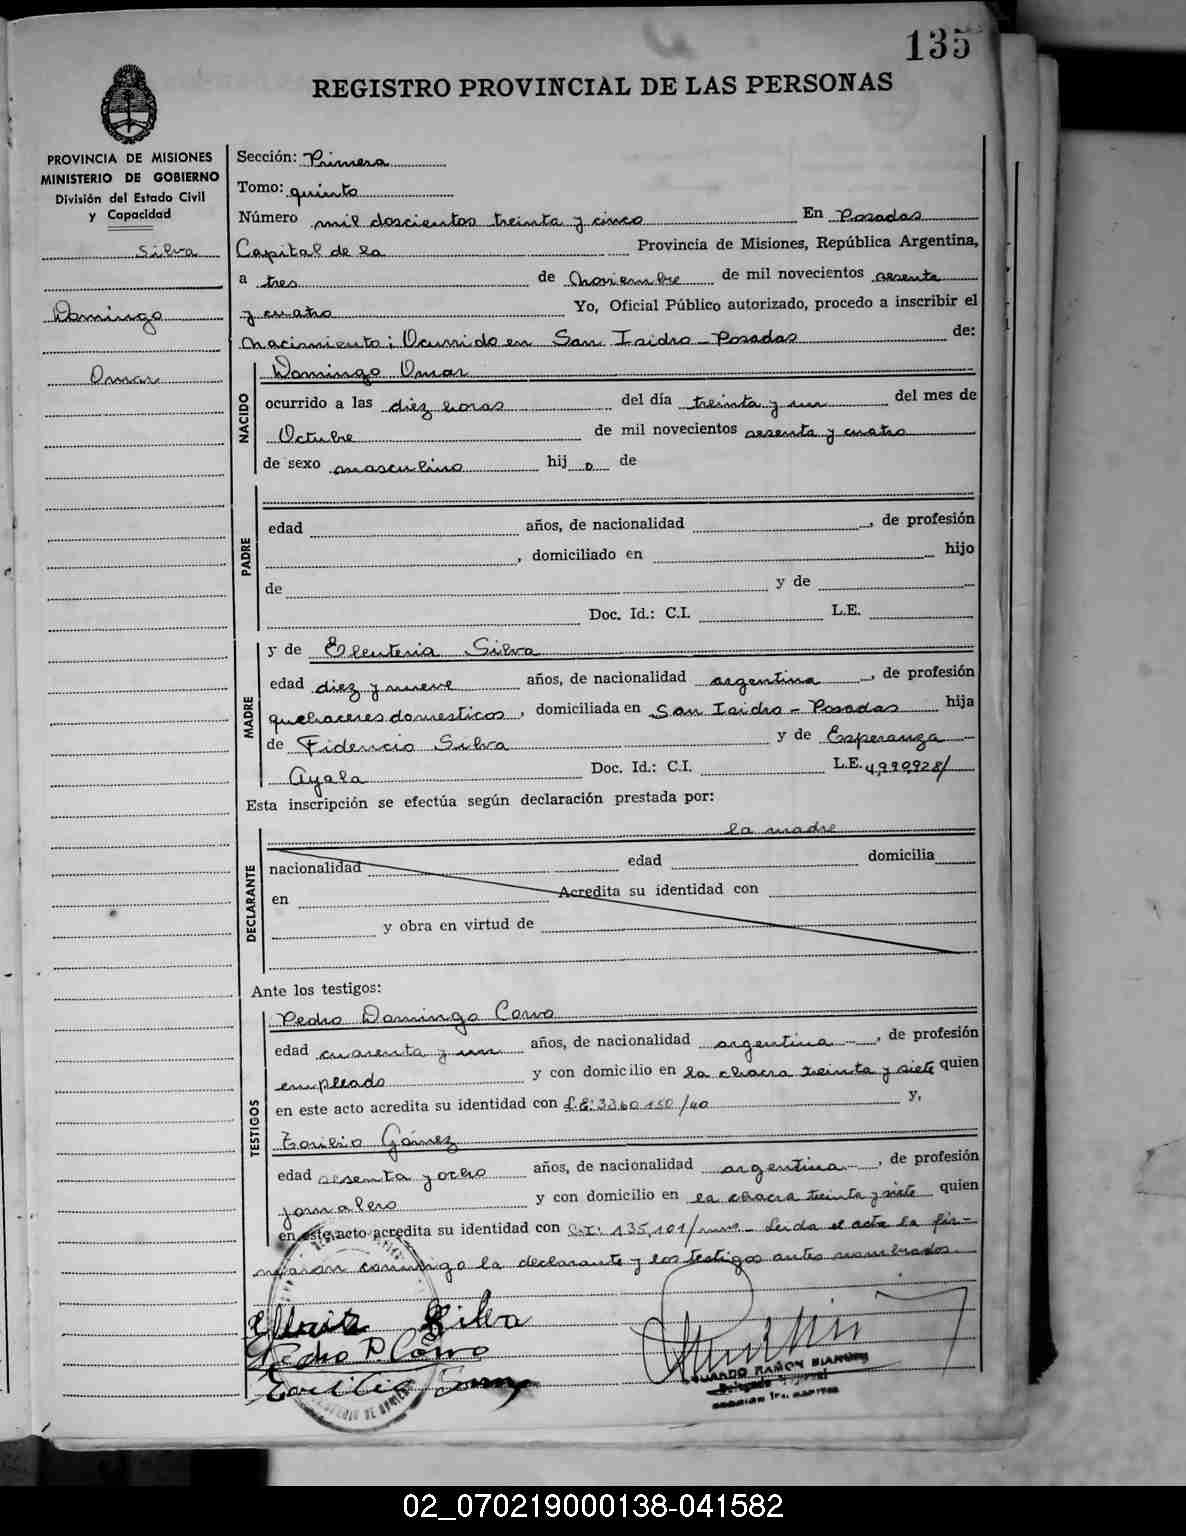 135
REGISTRO PROVINCIAL DE LAS PERSONAS
PROVINCIA DE MISIONES
MINISTERIO DE GOBIERNO
División del Estado Civil
y Capacidad
Silva
Domingo
Omar
Sección: Primera
Tomo: quinto
Número mil doscientos treinta y cinco En Posadas
Capital de la Provincia de Misiones, República Argentina,
a tres de Noviembre de mil novecientos sesenta
y cuatro Yo, Oficial Público autorizado, procedo a inscribir el
Nacimiento; Ocurrido en San Isidro - Posadas de:
NACIDO
Domingo Omar
ocurrido a las diez horas del día treinta y un del mes de
Octubre de mil novecientos sesenta y cuatro
de sexo masculino hij o de
PADRE
edad años, de nacionalidad , de profesión
, domiciliado en hijo
de y de
Doc. Id.: C.I. L.E.
MADRE
y de Eleuteria Silva
edad diez y nueve años, de nacionalidad argentina , de profesión
quehaceres domesticos , domiciliada en San Isidro - Posadas hija
de Fidencio Silva y de Esperanza
Ayala Doc. Id.: C.I. L.E. 4.990.928/
Esta inscripción se efectúa según declaración prestada por:
DECLARANTE
la madre
nacionalidad edad domicilia
en Acredita su identidad con
y obra en virtud de
Ante los testigos:
TESTIGOS
Pedro Domingo Corvo
edad cuarenta y un años, de nacionalidad argentina , de profesión
empleado y con domicilio en la chacra treinta y siete quien
en este acto acredita su identidad con L.E: 3360150/40 y,
Toribio Gómez
edad sesenta y ocho años, de nacionalidad argentina , de profesión
jornalero y con domicilio en la chacra treinta y siete quien
en este acto acredita su identidad con C.I: 135,101/ - Leida el acta la fir-
maron conmigo la declarante y los testigos antes nombrados.
Silva
Pedro D. Corvo
RAMON
02_070219000138-041582